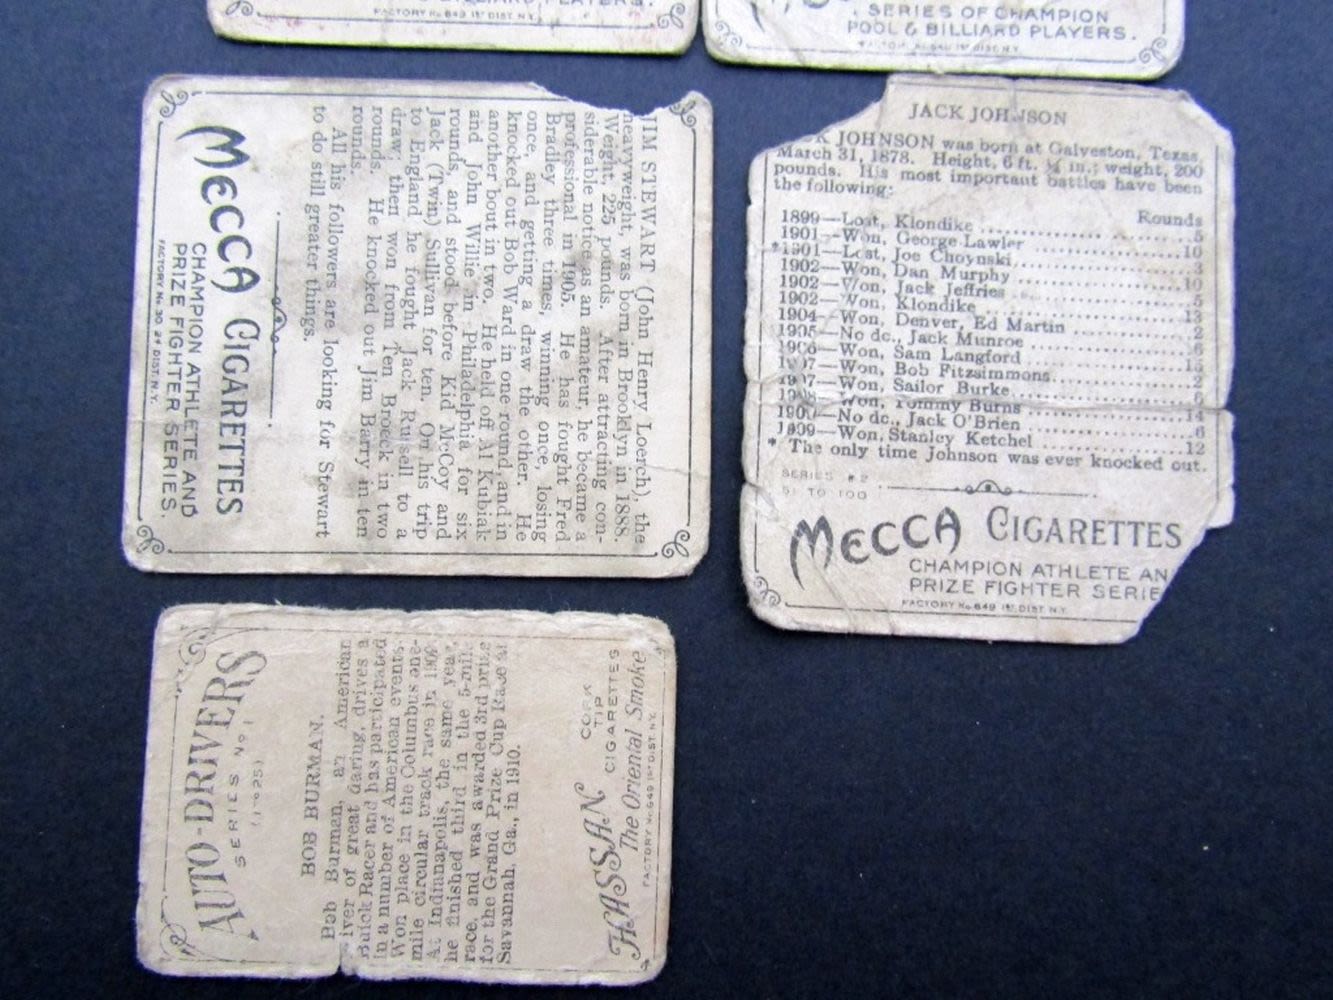 BILLIARD PLAYERS.
FACTORY No. 649 1st DIST. N.Y.
SERIES OF CHAMPION
POOL & BILLIARD PLAYERS.
FACTORY No. 649 1st DIST. N.Y.
JIM STEWART (John Henry Loerch), the
heavyweight, was born in Brooklyn in 1888.
Weight, 225 pounds. After attracting con-
siderable notice as an amateur, he became a
professional in 1905. He has fought Fred
Bradley three times, winning once, losing
once, and getting a draw the other. He
knocked out Bob Ward in one round, and in
another bout in two. He held off Al Kubiak
and John Willie in Philadelphia for six
rounds, and stood before Kid McCoy and
Jack (Twin) Sullivan for ten. On his trip
to England he fought Jack Russell to a
draw; then won from Ten Broeck in two
rounds. He knocked out Jim Barry in ten
rounds.
All his followers are looking for Stewart
to do still greater things.
MECCA CIGARETTES
CHAMPION ATHLETE AND
PRIZE FIGHTER SERIES.
FACTORY No. 30 2d DIST. N.Y.
JACK JOHNSON
JOHNSON was born at Galveston, Texas,
March 31, 1878. Height, 6 ft. in.; weight, 200
pounds. His most important battles have been
the following:
Rounds
1899—Lost, Klondike 5
1901—Won, George Lawler 10
*1901—Lost, Joe Choynski 3
1902—Won, Dan Murphy 10
1902—Won, Jack Jeffries 5
1902—Won, Klondike 13
1904—Won, Denver, Ed Martin 2
1905—No dc., Jack Munroe 6
1906—Won, Sam Langford 15
1907—Won, Bob Fitzsimmons 2
1907—Won, Sailor Burke 6
1908—Won, Tommy Burns 14
1909—No dc., Jack O'Brien 6
1909—Won, Stanley Ketchel 12
* The only time Johnson was ever knocked out.
SERIES #2
51 TO 100
MECCA CIGARETTES
CHAMPION ATHLETE AN
PRIZE FIGHTER SERIE
FACTORY No. 649 1st DIST. N.Y.
AUTO-DRIVERS
SERIES No 1
(1 to 25)
BOB BURMAN.
Bob Burman, an American
driver of great daring, drives a
Buick Racer and has participated
in a number of American events.
Won place in the Columbus one-
mile circular track race in
At Indianapolis, the same year,
he finished third in the 5-mile
race, and was awarded 3rd prize
for the Grand Prize Cup Race at
Savannah, Ga., in 1910.
HASSAN
CORK
TIP
CIGARETTES
The Oriental Smoke
FACTORY No. 649 1st DIST. N.Y.